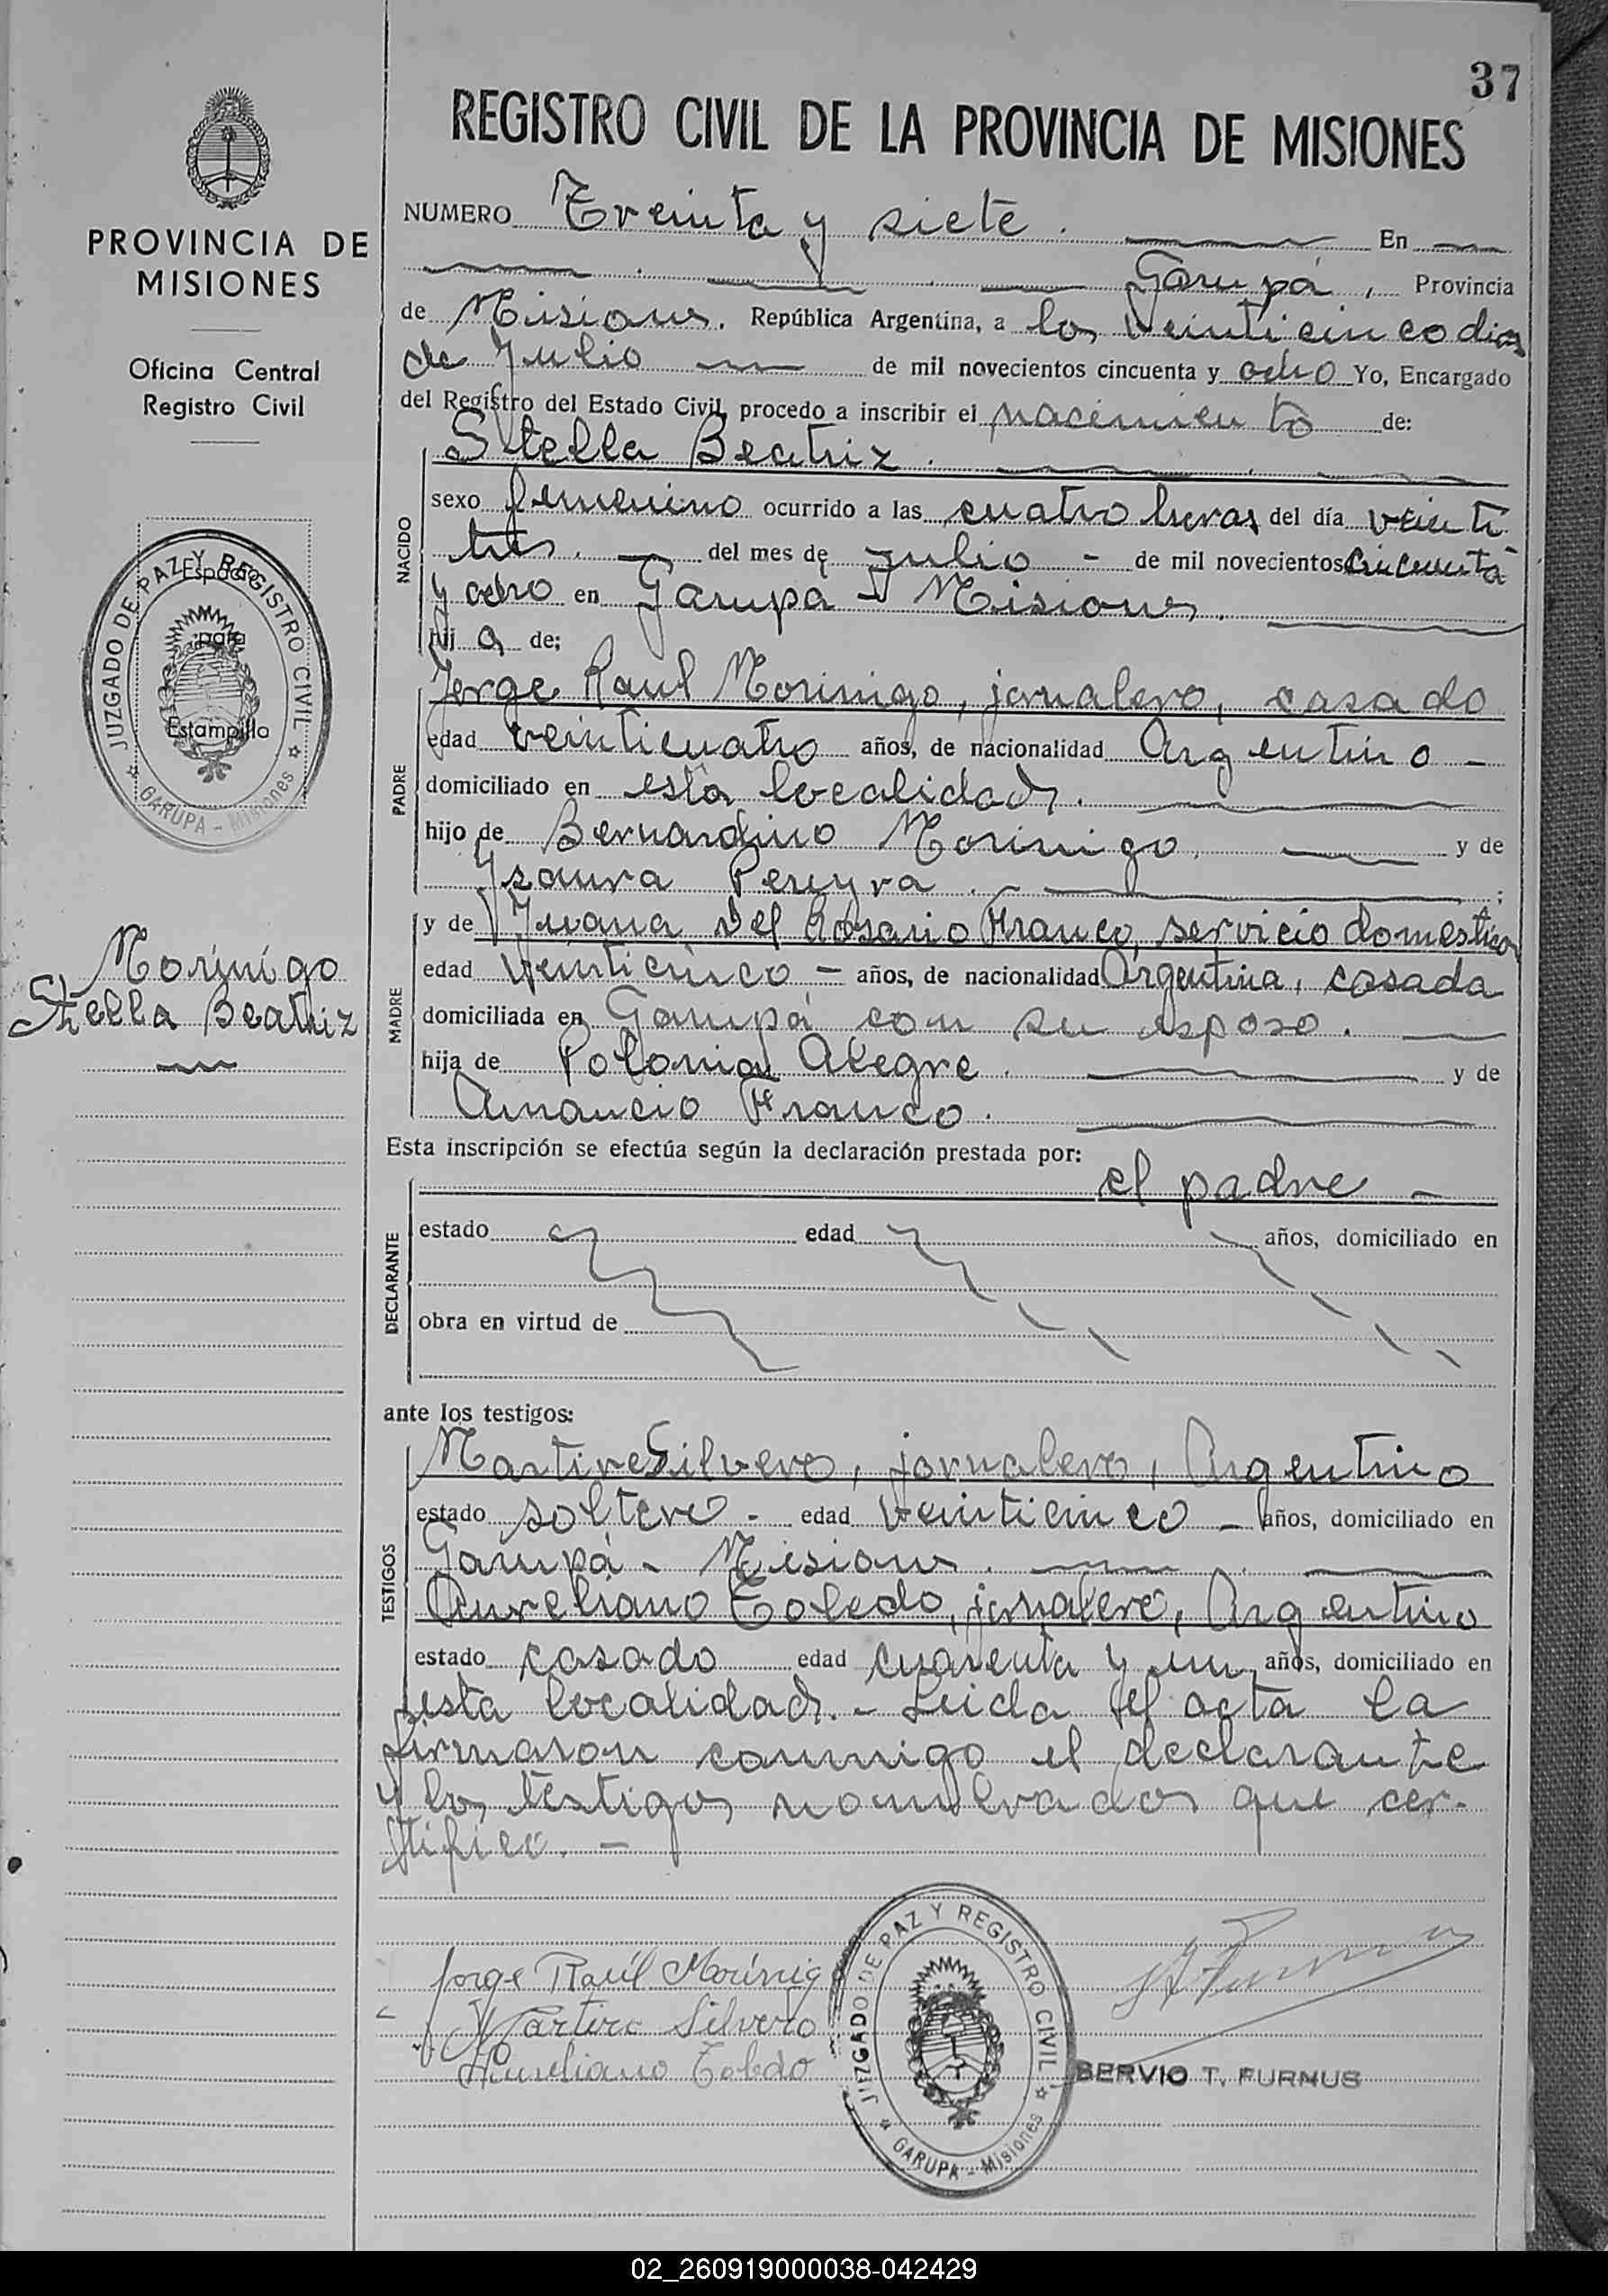 37
REGISTRO CIVIL DE LA PROVINCIA DE MISIONES
PROVINCIA DE
MISIONES
Oficina Central
Registro Civil
JUZGADO DE PAZ Y REGISTRO CIVIL
GARUPA - Misiones
Espacio
para
Estampillo
Morínigo
Stella Beatriz
NUMERO Treinta y siete. En
Garupá, Provincia
de Misiones. República Argentina, a los veinticinco dias
de Julio de mil novecientos cincuenta y ocho Yo, Encargado
del Registro del Estado Civil, procedo a inscribir el nacimiento de:
NACIDO
Stella Beatriz.
sexo femenino ocurrido a las cuatro horas del día veinti
tres. del mes de Julio - de mil novecientos cincuenta
y ocho en Garupá - Misiones.
hij a de;
PADRE
Jorge Raul Morinigo, jornalero, casado
edad veinticuatro años, de nacionalidad Argentino -
domiciliado en esta localidad.
hijo de Bernardino Morinigo, y de
Ysaura Pereyra. ;
MADRE
y de Juana del Rosario Franco, servicio domestico
edad Veinticinco - años, de nacionalidad Argentina, casada
domiciliada en Garupá con su esposo.
hija de Polonia Alegre. y de
Amancio Franco.
Esta inscripción se efectúa según la declaración prestada por:
el padre -
DECLARANTE
estado edad años, domiciliado en
obra en virtud de
ante los testigos:
TESTIGOS
Martires Silvero, jornalero, Argentino
estado soltero - edad veinticinco - años, domiciliado en
Garupá - Misiones.
Aureliano Toledo, jornalero, Argentino
estado casado edad cuarenta y un años, domiciliado en
esta localidad. - Leida el acta la
firmaron conmigo el declarante
y los testigos nombrados que cer-
tifico. -
Jorge Raúl Morínigo
Martire Silvero
Aureliano Toledo
JUZGADO DE PAZ Y REGISTRO CIVIL
GARUPA - Misiones
SERVIO T. FURNUS
02_260919000038-042429